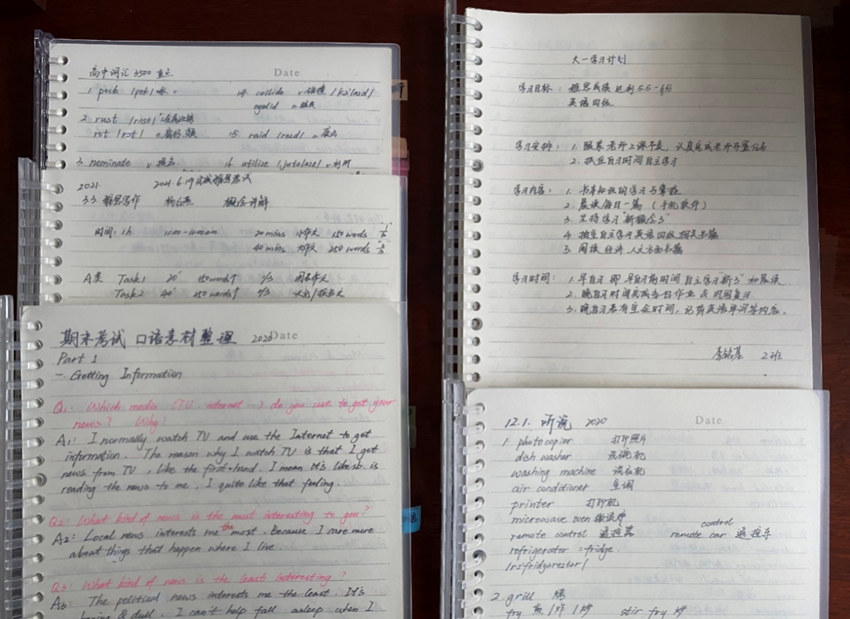 高中词汇 3500 重点
Date
1. peck /pek/
collide
2. rust /rʌst/
rot /rɒt/
raid /reɪd/
3. nominate v. 提名
utilize
2021.
2021.6.19
3.3. 雅思写作
时间: 1h
20 mins 小作文 150 words
40 mins 大作文 250 words
A类 Task1 20' 150 words↑ 1/3
Task2 40' 250 words↑ 2/3
期末考试 口语素材整理 2020
Date
Part 1
一. Getting Information
Q1: Which media (TV, internet …) do you use to get your
news? Why?
A1: I normally watch TV and use the Internet to get
information. The reason why I watch TV is that I get
news from TV, like the first-hand. I mean it's like sb. is
reading the news to me. I quite like that feeling.
Q2: What kind of news is the most interesting to you?
A2: Local news interests me the most. Because I care more
about things that happen where I live.
Q3: What kind of news is the least interesting?
A3: The political news interests me the least. It's
boring & dull. I can't help fall asleep when I
大一学习计划
学习目标: 雅思成绩达到5.5-6.5
英语四级
学习安排: 1. 跟着老师上课节奏, 认真完成老师布置任务
2. 抓住自习时间自主学习
学习内容: 1. 书本知识的学习与掌握
2. 晨读每日一篇 (手机软件)
3. 坚持学习"新概念3"
4. 抽空自主学习英语四级相关书籍
5. 阅读经济、人文方面书籍
学习时间: 1. 早自习前时间自主学习"新3"和晨读
2. 晚自习时间完成当日作业及巩固复习
3. 晚自习若有空余时间, 记背英语单词等内容.
2班
12.1. 听说 2020
Date
1. photocopier 打印照片
dish washer 洗碗机
washing machine 洗衣机
air conditioner 空调
printer 打印机
microwave oven 微波炉
remote control 遥控器 remote control car 遥控车
refrigerator = fridge
2. grill 烤
fry 煎/炸/炒 stir fry 炒